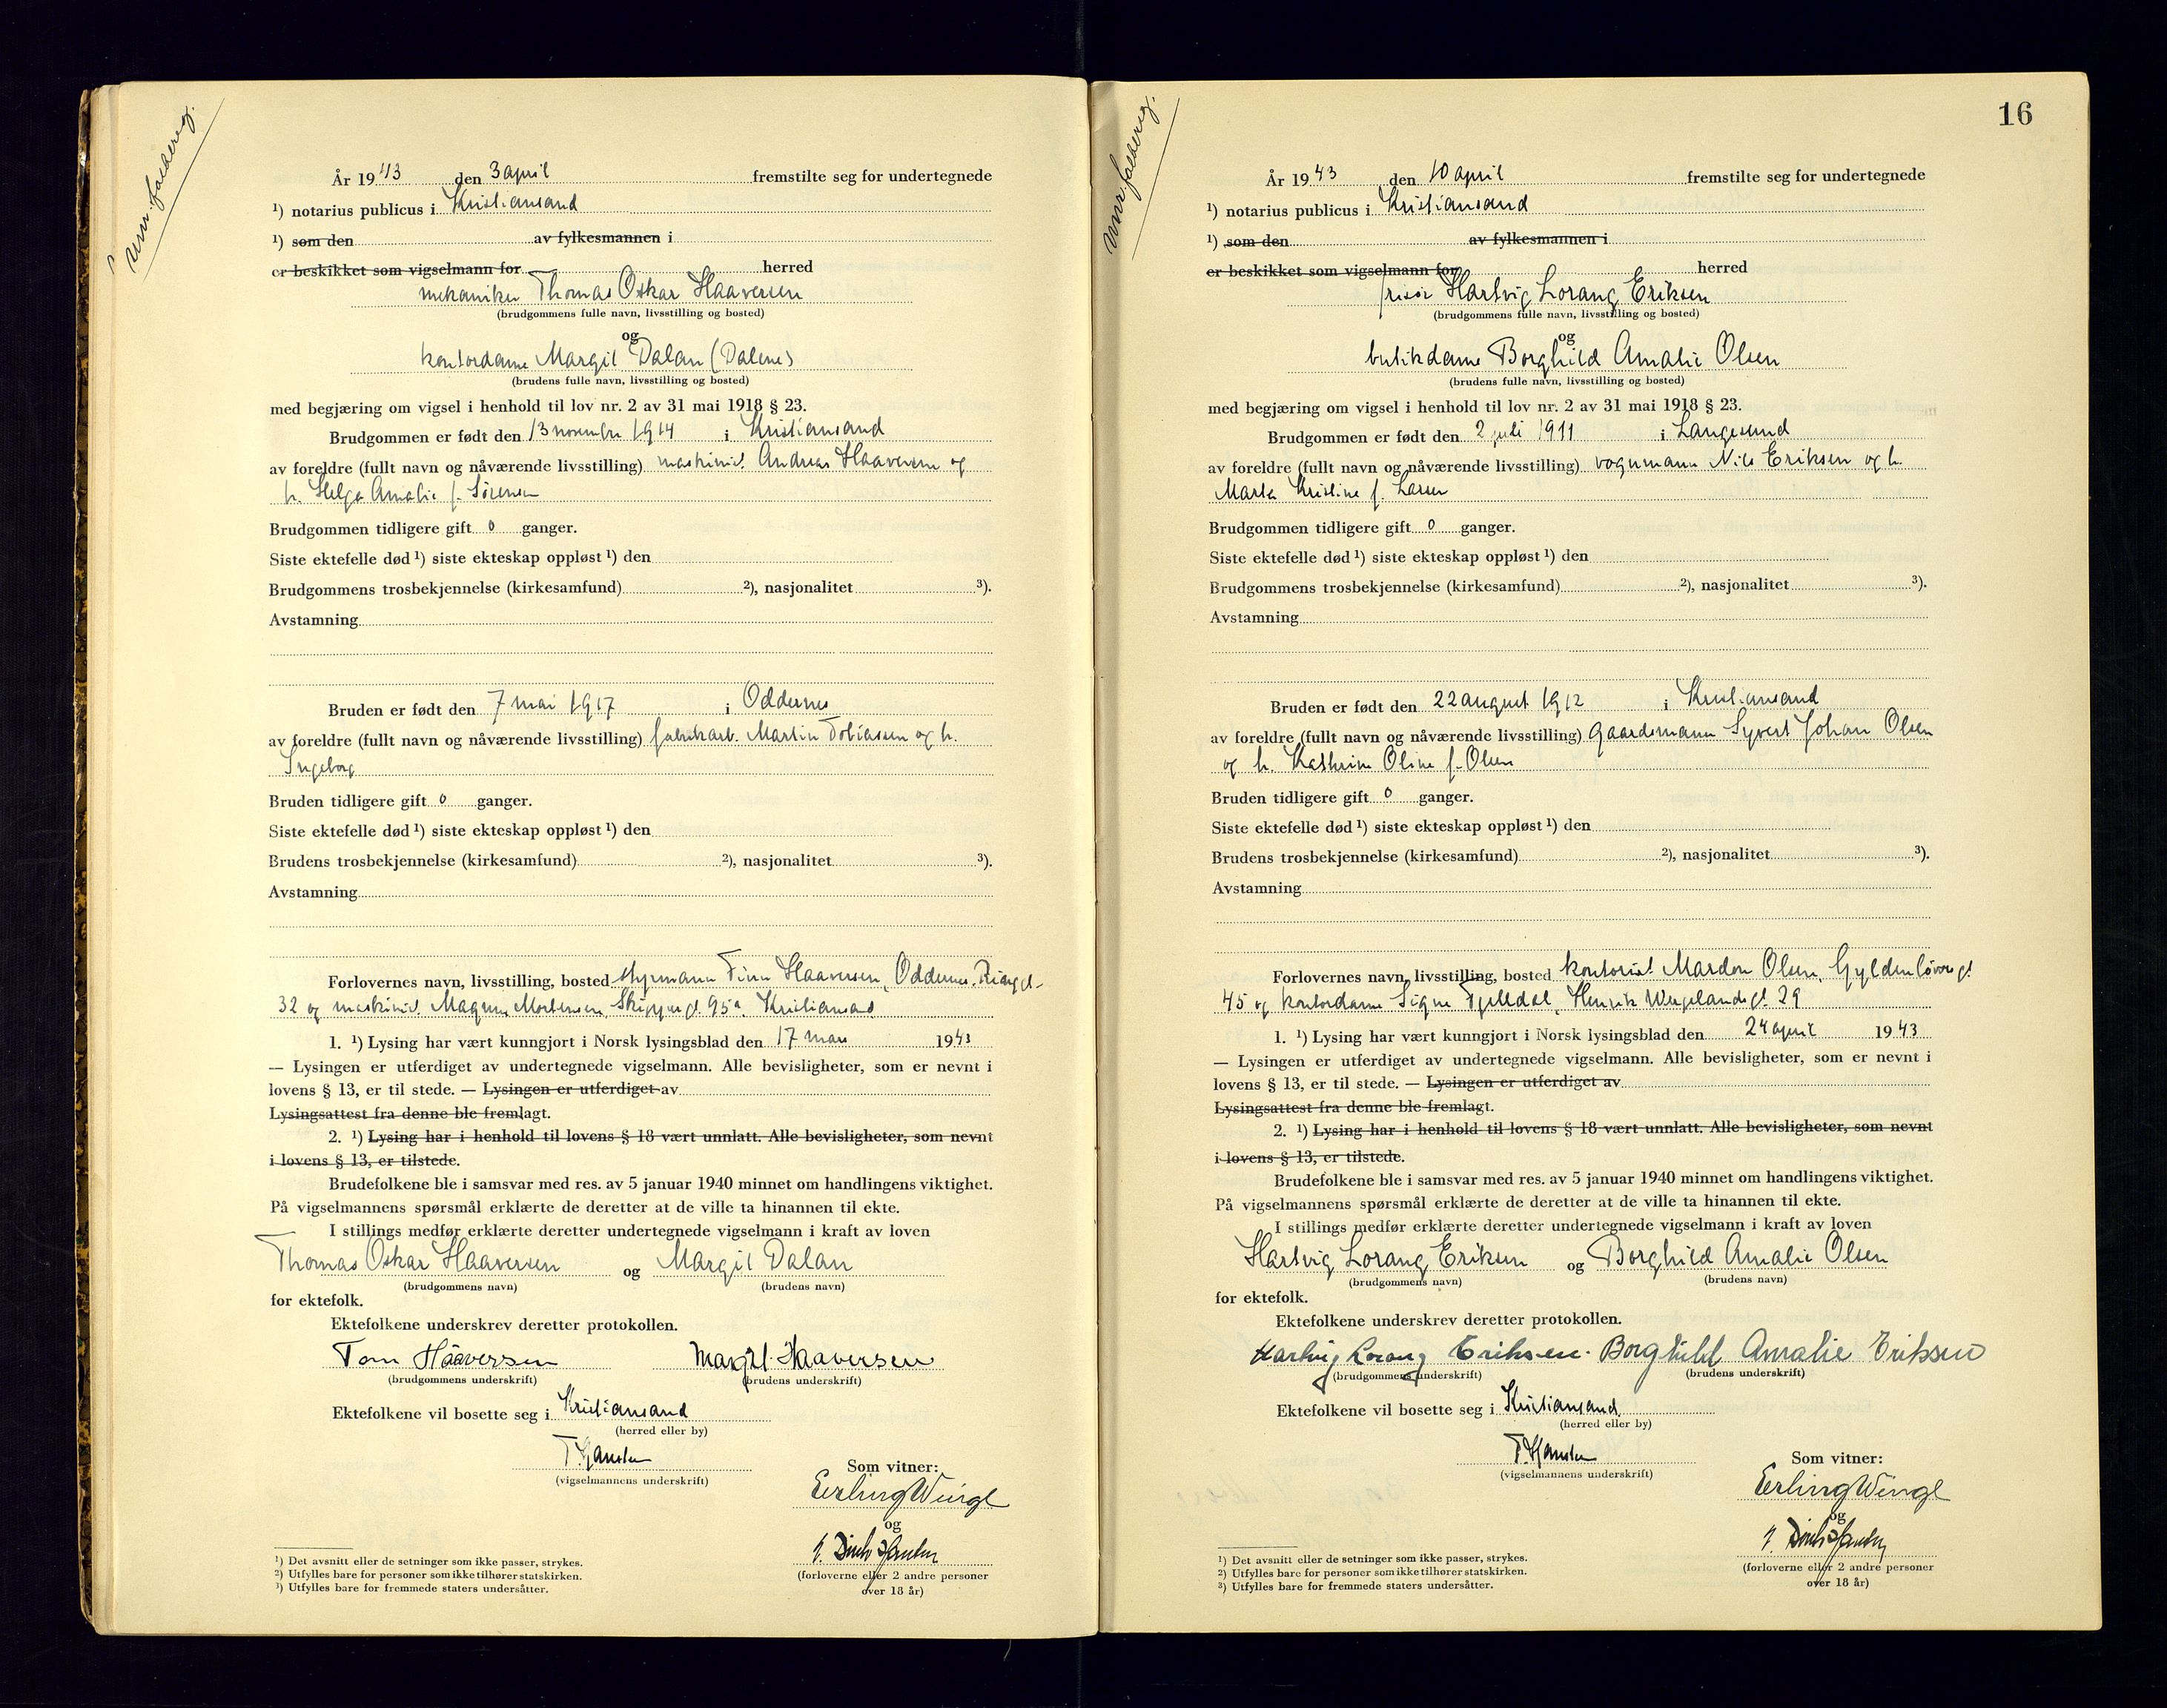 År 1943 den 3 april fremstilte seg for undertegnede
¹) notarius publicus i Kristiansand
¹) som den av fylkesmannen i
er beskikket som vigselmann for herred
mekaniker Thomas Oskar Haaversen
(brudgommens fulle navn, livsstilling og bosted)
og
kontordame Margit Dalan (Dalene)
(brudens fulle navn, livsstilling og bosted)
med begjæring om vigsel i henhold til lov nr. 2 av 31 mai 1918 § 23.
Brudgommen er født den 13 novembr 1914 i Kristiansand
av foreldre (fullt navn og nåværende livsstilling) maskinist Andreas Haaversen og
h. Helga Amalie f. Sørensen
Brudgommen tidligere gift 0 ganger.
Siste ektefelle død ¹) siste ekteskap oppløst ¹) den
Brudgommens trosbekjennelse (kirkesamfund) ²), nasjonalitet ³).
Avstamning
Bruden er født den 7 mai 1917 i Oddernes
av foreldre (fullt navn og nåværende livsstilling) fabrikarb. Martin Tobiassen og h.
Ingeborg
Bruden tidligere gift 0 ganger.
Siste ektefelle død ¹) siste ekteskap oppløst ¹) den
Brudens trosbekjennelse (kirkesamfund) ²), nasjonalitet ³).
Avstamning
Forlovernes navn, livsstilling, bosted styrmann Finn Haaversen, Oddernes,
32 og maskinist Magnus Mortensen, Skippergt. 95a, Kristiansand
1. ¹) Lysing har vært kunngjort i Norsk lysingsblad den 17 mars 1943
— Lysingen er utferdiget av undertegnede vigselmann. Alle bevisligheter, som er nevnt i
lovens § 13, er til stede. — Lysingen er utferdiget av
Lysingsattest fra denne ble fremlagt.
2. ¹) Lysing har i henhold til lovens § 18 vært unnlatt. Alle bevisligheter, som nevnt
i lovens § 13, er tilstede.
Brudefolkene ble i samsvar med res. av 5 januar 1940 minnet om handlingens viktighet.
På vigselmannens spørsmål erklærte de deretter at de ville ta hinannen til ekte.
I stillings medfør erklærte deretter undertegnede vigselmann i kraft av loven
Thomas Oskar Haaversen og Margit Dalan
(brudgommens navn) (brudens navn)
for ektefolk.
Ektefolkene underskrev deretter protokollen.
Tom Haaversen Margit Haaversen
(brudgommens underskrift) (brudens underskrift)
Ektefolkene vil bosette seg i Kristiansand
(herred eller by)
(vigselmannens underskrift)
Som vitner:
Erling Wingl
og
(forloverne eller 2 andre personer
over 18 år)
¹) Det avsnitt eller de setninger som ikke passer, strykes.
²) Utfylles bare for personer som ikke tilhører statskirken.
³) Utfylles bare for fremmede staters undersåtter.
16
År 1943 den 10 april fremstilte seg for undertegnede
¹) notarius publicus i Kristiansand
¹) som den av fylkesmannen i
er beskikket som vigselmann for herred
frisør Hartvig Lorang Eriksen
(brudgommens fulle navn, livsstilling og bosted)
og
butikdame Borghild Amalie Olsen
(brudens fulle navn, livsstilling og bosted)
med begjæring om vigsel i henhold til lov nr. 2 av 31 mai 1918 § 23.
Brudgommen er født den 2 juli 1911 i Langesund
av foreldre (fullt navn og nåværende livsstilling) vognmann Nils Eriksen og h.
Marta Kristine f. Larsen
Brudgommen tidligere gift 0 ganger.
Siste ektefelle død ¹) siste ekteskap oppløst ¹) den
Brudgommens trosbekjennelse (kirkesamfund) ²), nasjonalitet ³).
Avstamning
Bruden er født den 22 august 1912 i Kristiansand
av foreldre (fullt navn og nåværende livsstilling) Gaardsmann Syvert Johan Olsen
og h. Kathrine Oline f. Olsen
Bruden tidligere gift 0 ganger.
Siste ektefelle død ¹) siste ekteskap oppløst ¹) den
Brudens trosbekjennelse (kirkesamfund) ²), nasjonalitet ³).
Avstamning
Forlovernes navn, livsstilling, bosted kontorist Mardon Olsen, Gyldenløvesgt
45 og kontordame Signe Fjelldal, Henrik Wergelandsgt. 29
1. ¹) Lysing har vært kunngjort i Norsk lysingsblad den 24 april 1943
— Lysingen er utferdiget av undertegnede vigselmann. Alle bevisligheter, som er nevnt i
lovens § 13, er til stede. — Lysingen er utferdiget av
Lysingsattest fra denne ble fremlagt.
2. ¹) Lysing har i henhold til lovens § 18 vært unnlatt. Alle bevisligheter, som nevnt
i lovens § 13, er tilstede.
Brudefolkene ble i samsvar med res. av 5 januar 1940 minnet om handlingens viktighet.
På vigselmannens spørsmål erklærte de deretter at de ville ta hinannen til ekte.
I stillings medfør erklærte deretter undertegnede vigselmann i kraft av loven
Hartvig Lorang Eriksen og Borghild Amalie Olsen
(brudgommens navn) (brudens navn)
for ektefolk.
Ektefolkene underskrev deretter protokollen.
Hartvig Lorang Eriksen. Borghild Amalie Eriksen
(brudgommens underskrift) (brudens underskrift)
Ektefolkene vil bosette seg i Kristiansand
(herred eller by)
(vigselmannens underskrift)
Som vitner:
Erling Wingl
og
(forloverne eller 2 andre personer
over 18 år)
¹) Det avsnitt eller de setninger som ikke passer, strykes.
²) Utfylles bare for personer som ikke tilhører statskirken.
³) Utfylles bare for fremmede staters undersåtter.